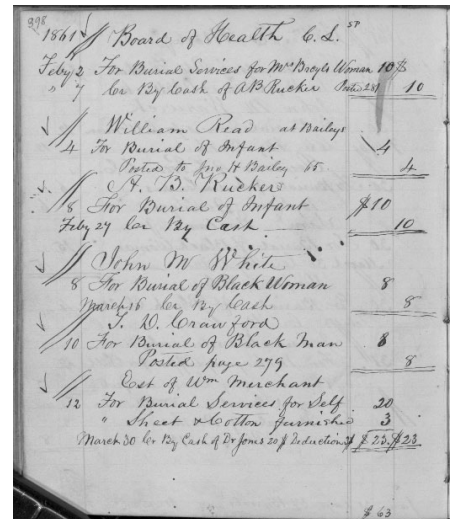 398
1861 Board of Health C. L. SP
Feby 2 For Burial Services for Mrs Broyls Woman 10 $
" 7 Cr By Cash of A B Rucker Posted 281 10
William Read at Baileys
4 For Burial of Infant 4
Posted to Jno H Bailey 65 4
A. B. Rucker
8 For Burial of Infant $10
Feby 27 Cr By Cash 10
John M White
8 For Burial of Black Woman 8
March 16 Cr By Cash 8
Crawford
10 For Burial of Black Man 8
Posted page 279 8
Est of Wm Merchant
12 For Burial Services for Self 20
" Sheet & Cotton furnishd 3
March 30 Cr By Cash of Dr Jones 20 $ Deduction 3 $ 23. $23
$ 63